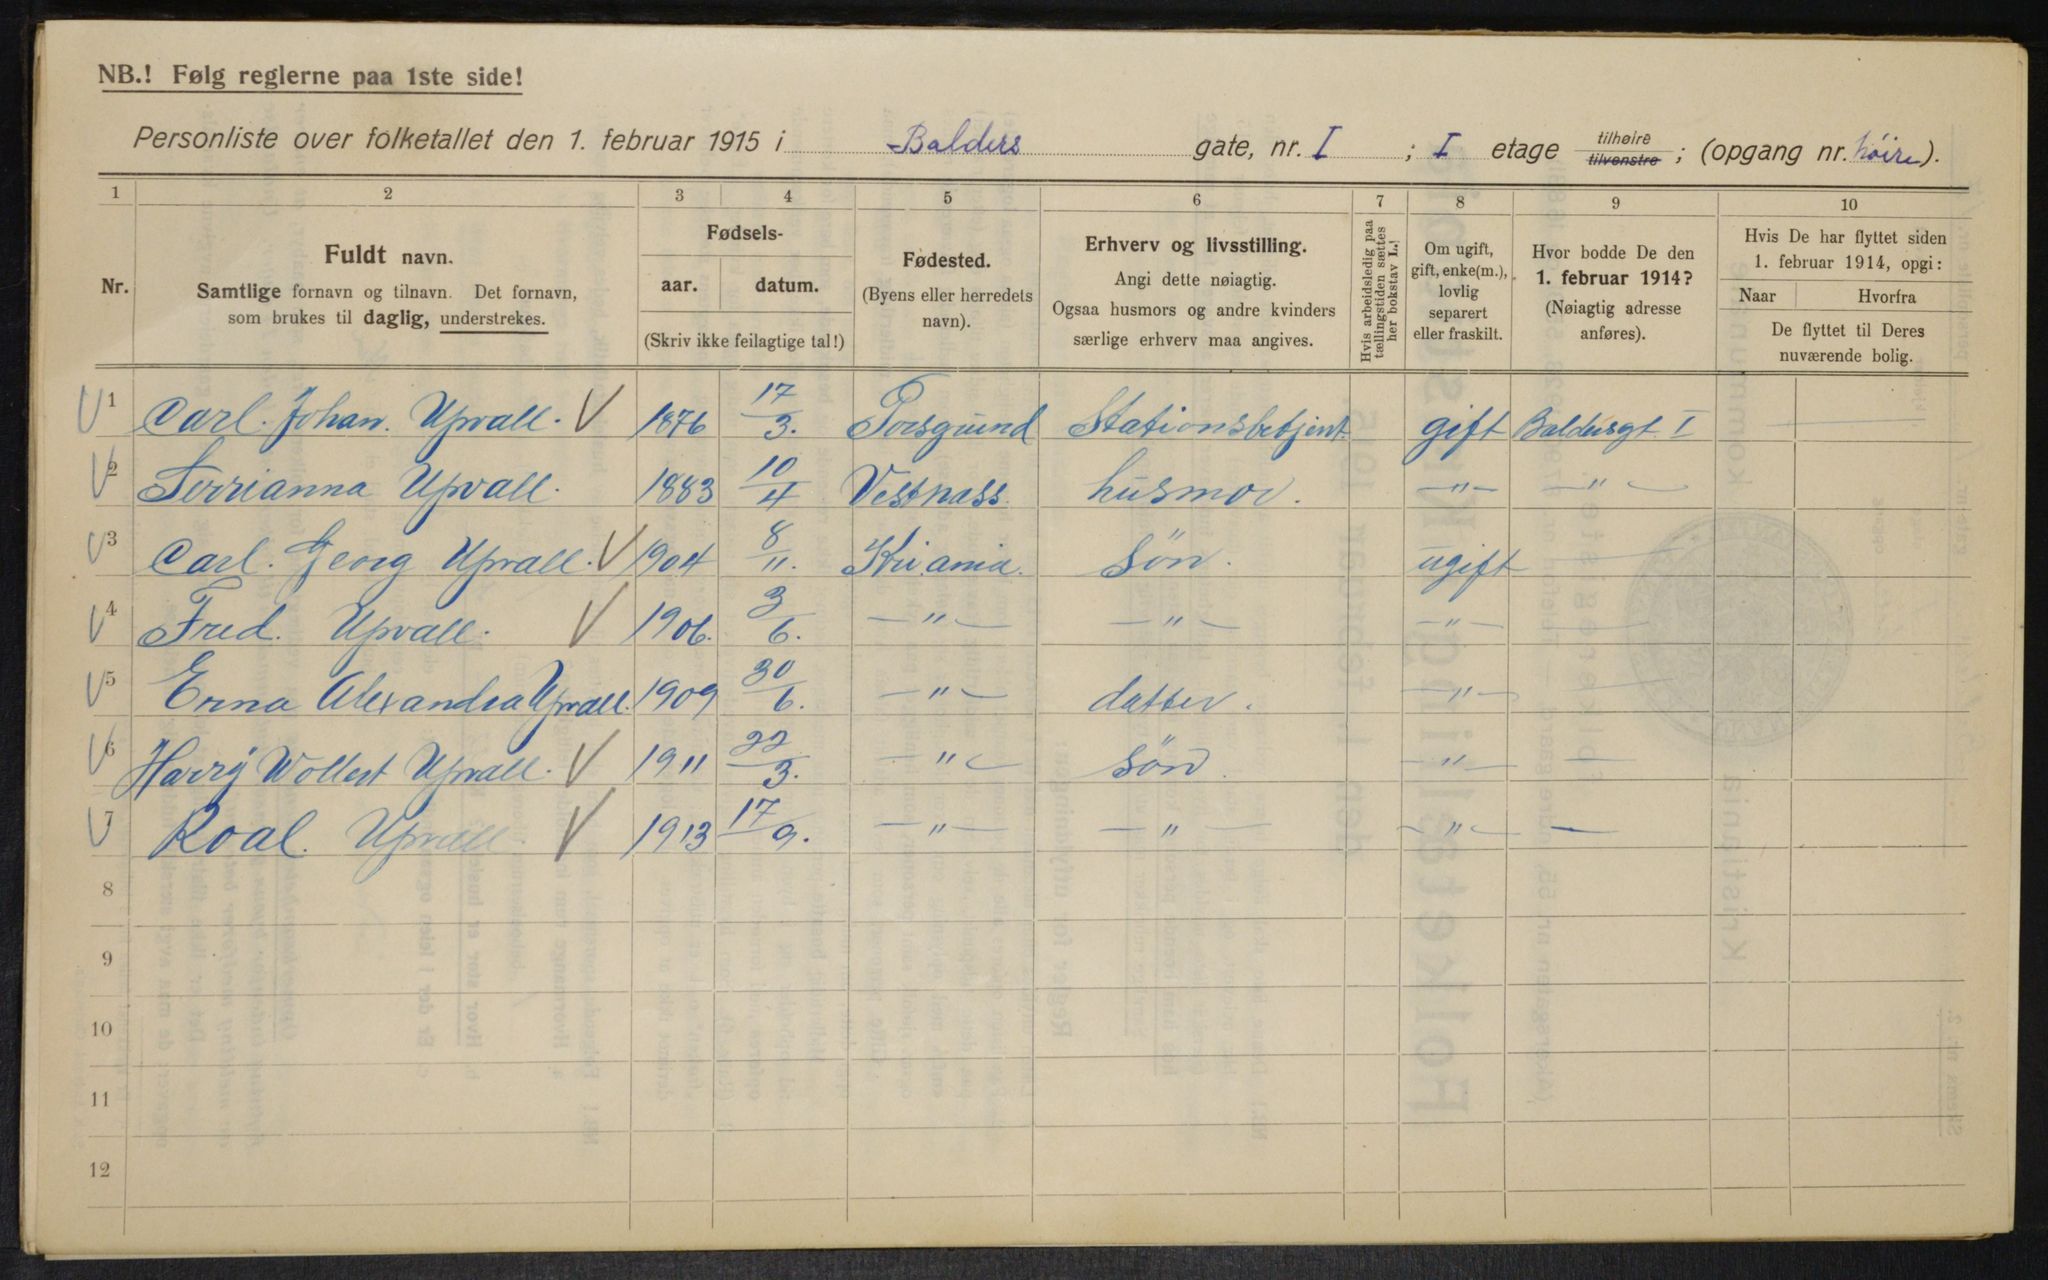 NB.! Følg reglerne paa 1ste side!
Personliste over folketallet den 1. februar 1915 i Balders gate, nr. I ; I etage tilhøire tilvenstre ; (opgang nr. høire).
1 2 3 4 5 6 7 8 9 10
Nr.
Fuldt navn.
Samtlige fornavn og tilnavn. Det fornavn,
som brukes til daglig, understrekes.
Fødsels-
aar. datum.
(Skriv ikke feilagtige tal!)
Fødested.
(Byens eller herredets
navn).
Erhverv og livsstilling.
Angi dette nøiagtig.
Ogsaa husmors og andre kvinders
særlige erhverv maa angives.
Hvis arbeidsledig paa
tællingstiden sættes
her bokstav L.!
Om ugift,
gift, enke(m.),
lovlig
separert
eller fraskilt.
Hvor bodde De den
1. februar 1914?
(Nøiagtig adresse
anføres).
Hvis De har flyttet siden
1. februar 1914, opgi:
Naar Hvorfra
De flyttet til Deres
nuværende bolig.
1 Carl. Johan. Upvall. V 1876 17/3. Porsgrund Stationsbetjent gift Baldersgt I
2 Serrianna Upvall. 1883 10/4 Vestnass. husmor. —"— —"—
3 Carl. Georg Upvall. V 1904 8/11. Kri.ania. Søn. ugift —
4 Fred. Upvall. V 1906. 3/6. —"— —"— —"— —
5 Erna Alexandra Upvall. 1909 30/6. —"— datter. —"— —
6 Harry Wollert Upvall. V 1911 22/3. —"— Søn —"— —
7 Roal. Upvall. V 1913 17/9. —"— —"— —"— —
8
9
10
11
12